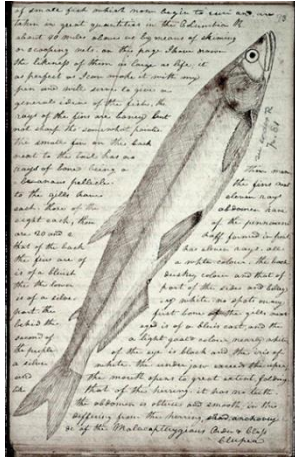 of small fish which now begin to run and are 93
taken in great quantities in the Columbia R.
about 40 miles above us by means of skiming
or scooping nets. on this page I have drawn
the likeness of them as large as life; it
as perfect as I can make it with my
pen and will serve to give a
general idea of the fish. the
rays of the fins are boney but
not sharp tho' somewhat pointed.
the small fin on the back
next to the tail has no
rays of bone being a
branous pellicle.
to the gills have
each. those of the
eight each, those
are 20 and 2
that of the back
the fins are of
is of a bluish
the lower
is of a silve-
part. the
behind the
second of
the puple
a silver
with
like
then mem
the fins next
eleven rays
abdomen have
of the pinnovani
haff formed in front.
has eleven rays. all
a white colour. the back
duskey colour and that of
part of the sides and belley
ry white. no spots on any
first bone of the gills next
eye is of a bluis cast, and the
a light goald colour nearly white
of the eye is black and the iris of
white. the under jaw exceeds the uper;
the mouth opens to great extent, folding
that of the herring. it has no teeth.
the abdomen is obtuse and smooth; in this
differing from the herring, shad anchovy
&c of the Malacapterygious Order & Class
Clupea